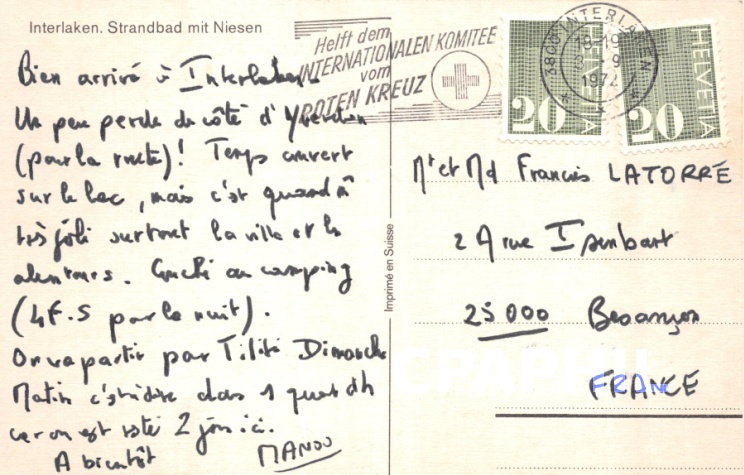 Interlaken. Strandbad mit Niesen
Bien arrivé à Interlaken.
Un peu perdu du côté d'Yverdon
(pour la route)! Temps couvert
sur le lac, mais c'est quand m
très joli surtout la ville et les
alentours. au camping
(4F.S par nuit).
On va partir pour Dimanche
Matin c'est à dire dans 1 quart d'h
car on est resté 2 jours ici.
A bientôt
MANOU
Helft dem
INTERNATIONALEN KOMITEE
vom
ROTEN KREUZ
3800 INTERLAKEN
1972
20 HELVETIA
20 HELVETIA
Imprimé en Suisse
Mr et Md Francis LATORRE
2A rue Isenbart
25000 Besançon
FRANCE
CPAPHIL